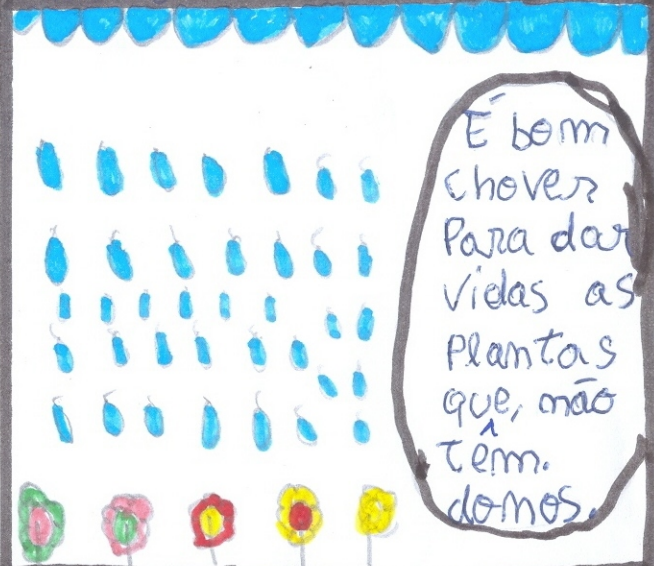 É bom
chover
Para dar
vidas as
plantas
que, não
têm.
donos.